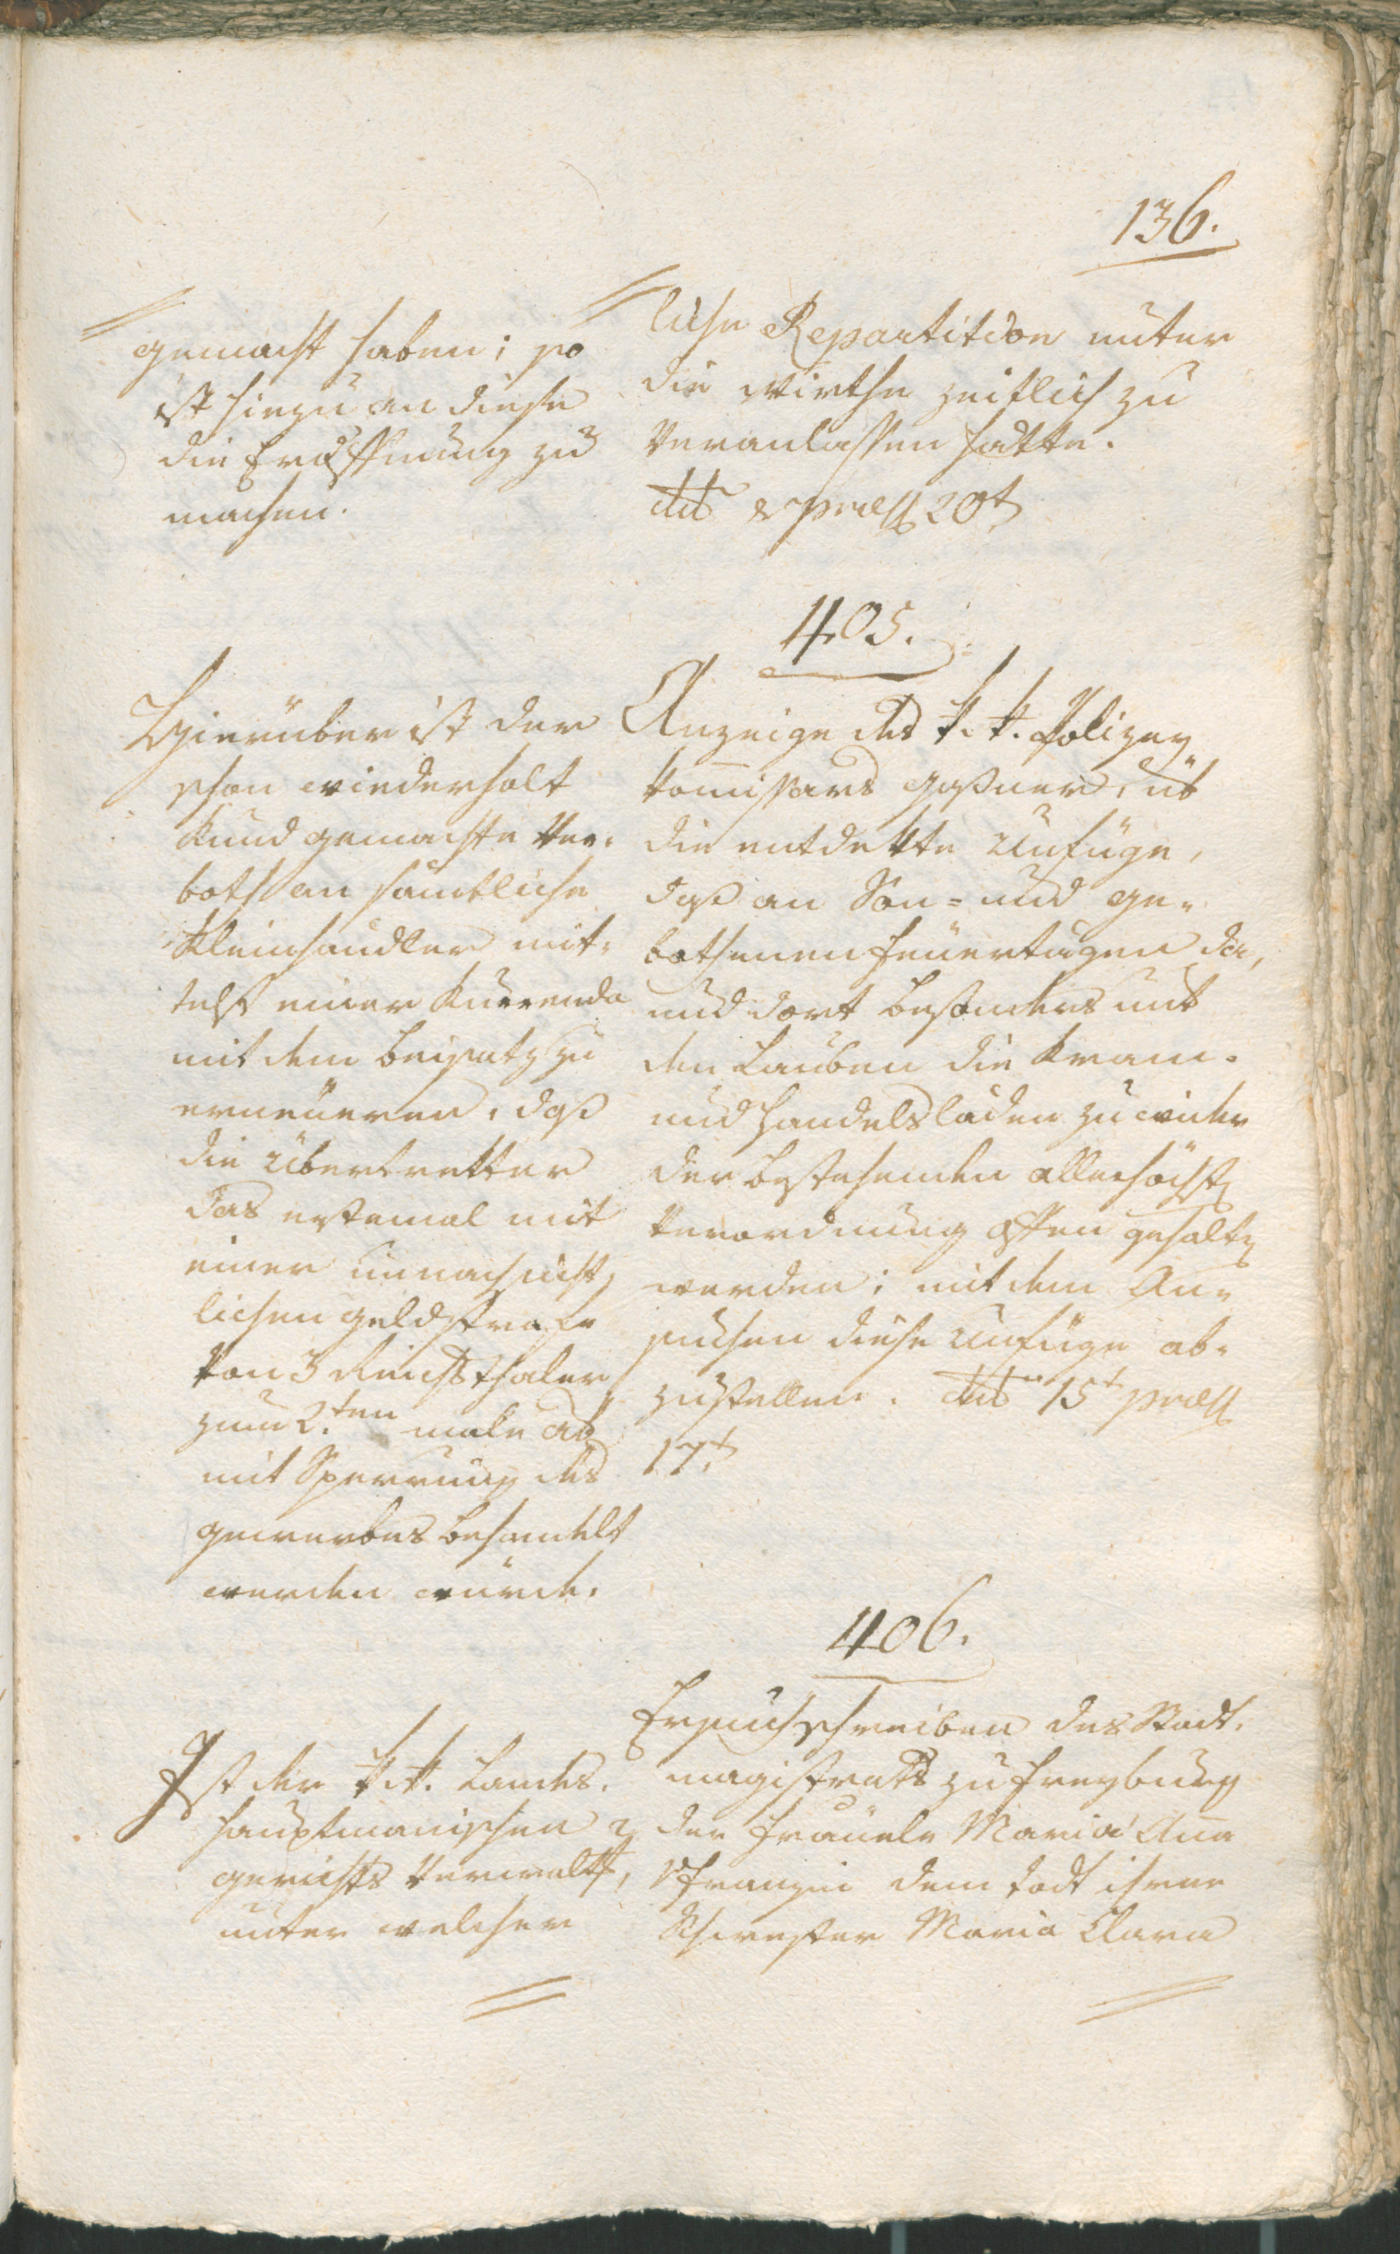 136.
gemacht haben; so
ist hiezu an diese
die Eröffnung zu
machen.
liche Repartition unter
die Wirthe zeitlich zu
veranlassen hätte.
dtō & præs 20t
405.
Hierüber ist der
schon wiederholt
kund gemachte Ver:
both an sämtliche
Kleinhandler mit:
telst einer Kurrenda
mit dem Beisatz zu
erneüeren, daß
die Übertretter
das erstemal mit
einer unnachsicht
lichen Geldstrafe
von 3 Reichsthaler
zum 2.ten male ab
mit Sperrung des
Gewerbes behandelt
werden würde.
Anzeige des k. k. Polizey
kom̅issärs Gaßner, üb
die entdekte Unfüge,
daß an Son= und ge:
bothenen Feüertagen da,
und dort besonders unt
den Lauben die Kram:
und Handelsläden zu wider
der bestehenden allerhöchst
Verordnung offen gehalt
werden; mit dem An:
suchen diese Unfüge ab:
zustellen. dtō 15t præs
17t
406.
Ist der k. k. Landes:
hauptmanischen
gerichts Verwalt,
unter welcher
Ersuchschreiben des Stadt:
magistrats zu Freyburg
der Fräüele Maria Ana̅
dem todt ihrer
Schwester Maria Clara